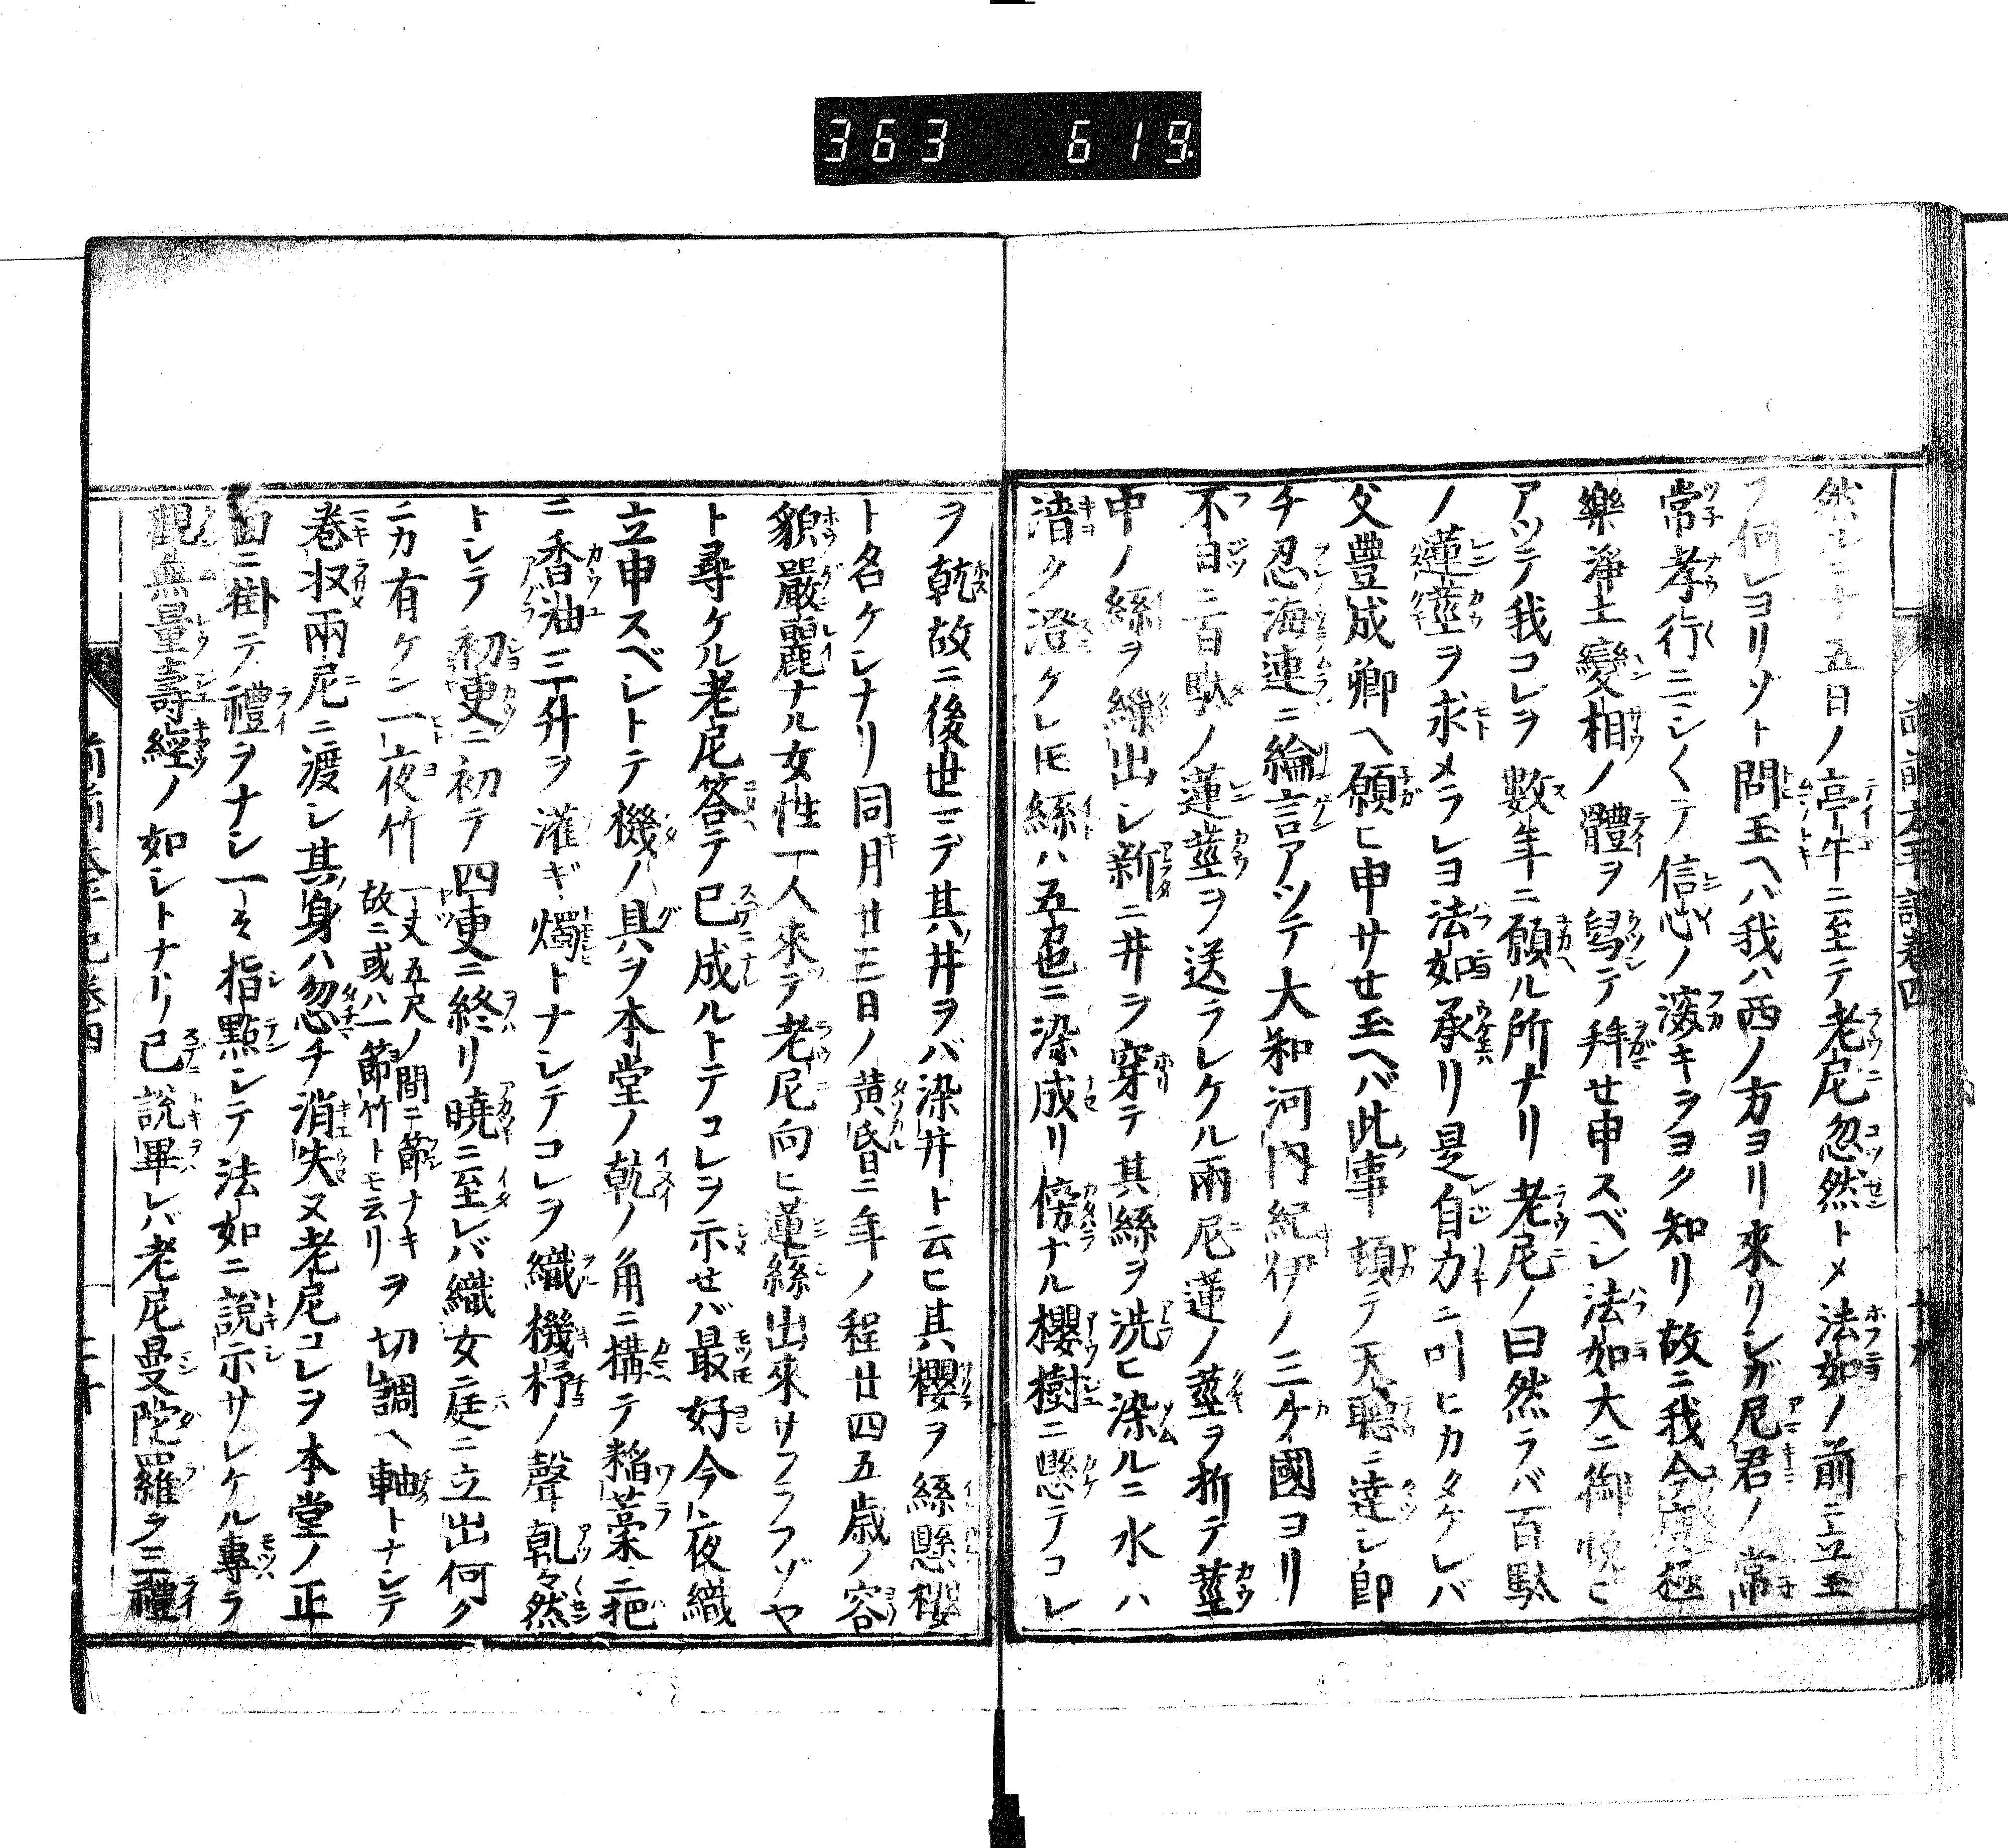 363 619
前前太平記卷四 十九
然ルニ十五日ノ亭午ニ至テ老尼忽然トメ法如ノ前ニ立玉
フ何レヨリゾト問玉ヘバ我ハ西ノ方ヨリ來リシガ尼君ノ常
常孝行ニシ〱テ信心ノ深キヲヨク知リ故ニ我今度極
樂淨土變相ノ體ヲ寫テ拜セ申スベシ法如大ニ御悦ヒ
アツテ我コレヲ數年ニ願ル所ナリ老尼ノ曰然ラバ百駄
ノ蓮莖ヲ求メラレヨ法如承リ是自力ニ叶ヒカタケレバ
父豐成卿ヘ願ヒ申サセ玉ヘバ此事頓テ天聽ニ達シ即
チ忍海連ニ綸言アツテ大和河内紀伊ノ三ケ國ヨリ
不日ニ百駄ノ蓮莖ヲ送ラレケル兩尼蓮ノ莖ヲ折テ莖
中ノ絲ヲ繰出シ新ニ井ヲ穿テ其絲ヲ洗ヒ染ルニ水ハ
清ク澄ケレ𪜈絲ハ五色ニ染成リ傍ナル櫻樹ニ懸テコレ
ヲ乾故ニ後世マデ其井ヲバ染井ト云ヒ其櫻ヲ絲懸櫻
ト名ケシナリ同月廿三日ノ黄昏ニ年ノ程廿四五歳ノ容
貌嚴麗ナル女性一人來テ老尼向ヒ蓮絲出來サフラフゾヤ
ト尋ケル老尼答テ已成ルトテコレヲ示セバ最好今夜織
立申スベシトテ機ノ具ヲ本堂ノ乾ノ角ニ構テ稲藁二把
ニ香油三升ヲ灌ギ燭トナシテコレヲ織機杼ノ聲軋々然
トシテ初更ニ初テ四更ニ終リ曉ニ至レバ織女庭ニ立出何ク
ニカ有ケン一夜竹一丈五尺ノ間ニ節ナキヲ切調ヘ軸トナシテ
故ニ或ハ一節竹トモ云リ
卷収兩尼ニ渡シ其身ハ忽チ消失ヌ老尼コレヲ本堂ノ正
面ニ掛テ禮ヲナシ一々指點シテ法如ニ說示サレケル專ラ
觀無量壽經ノ如シトナリ已說畢レバ老尼曼陀羅ヲ三禮
前前太平記卷四 二十